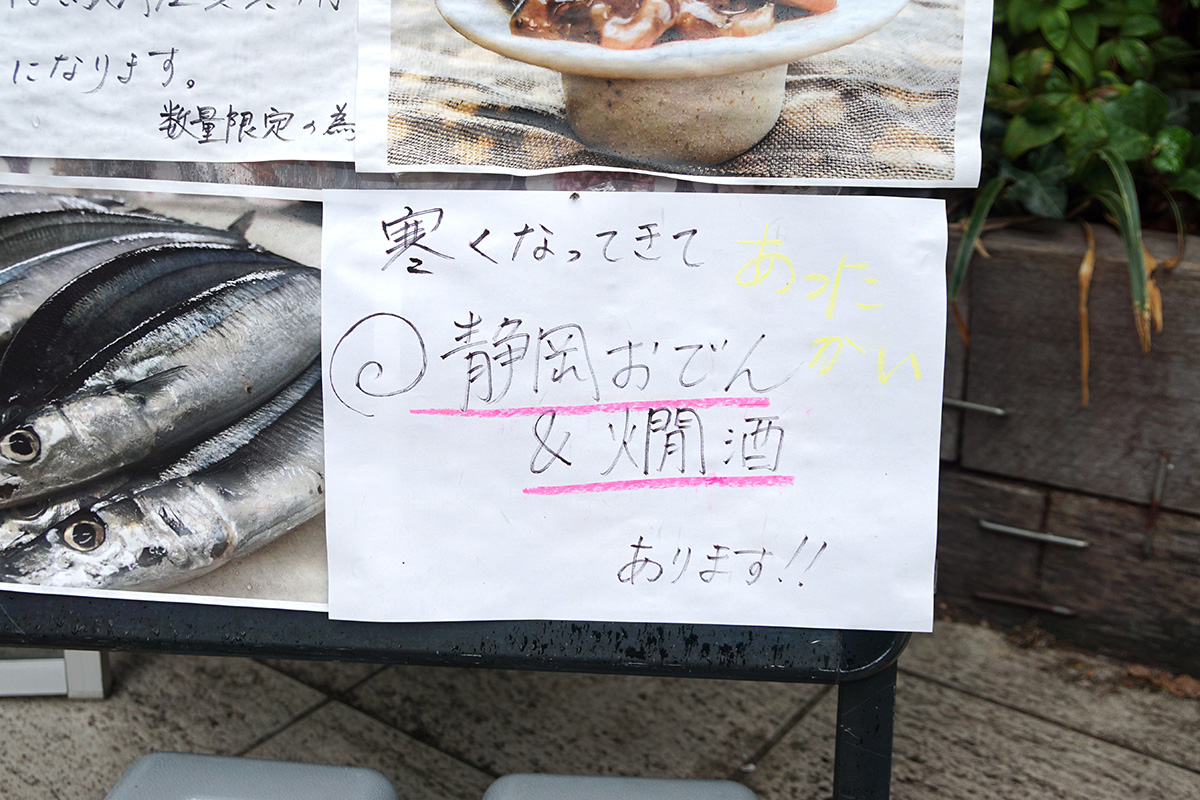 になります。
数量限定の為
寒くなってきて
あったかい
静岡おでん
&燗酒
あります!!